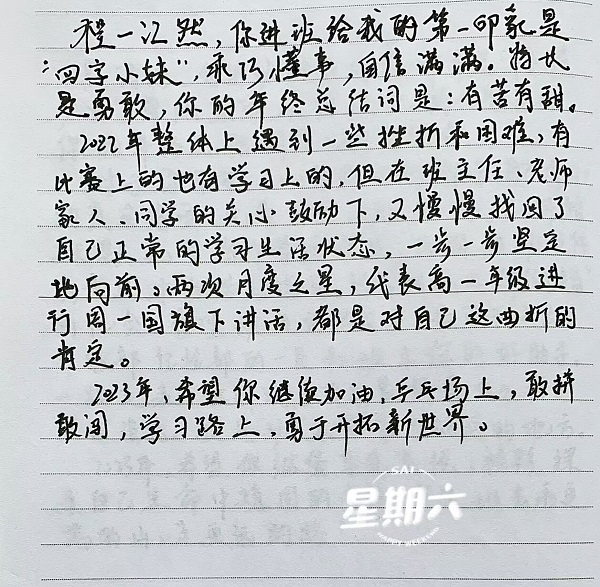 程一汇然，你进班给我的第一印象是
"四字小妹"，乖巧懂事，自信满满。特长
是勇敢，你的年终总结词是：有苦有甜。
2022年整体上遇到一些挫折和困难，有
比赛上的也有学习上的，但在班主任、老师
家人、同学的关心鼓励下，又慢慢找回了
自己正常的学习生活状态，一步一步坚定
地向前。两次月度之星，代表高一年级进
行周一国旗下讲话，都是对自己这曲折的
肯定。
2023年，希望你继续加油，乒乓场上，敢拼
敢闯，学习路上，勇于开拓新世界。
SAT
星期六
HAPPY WEEKEND